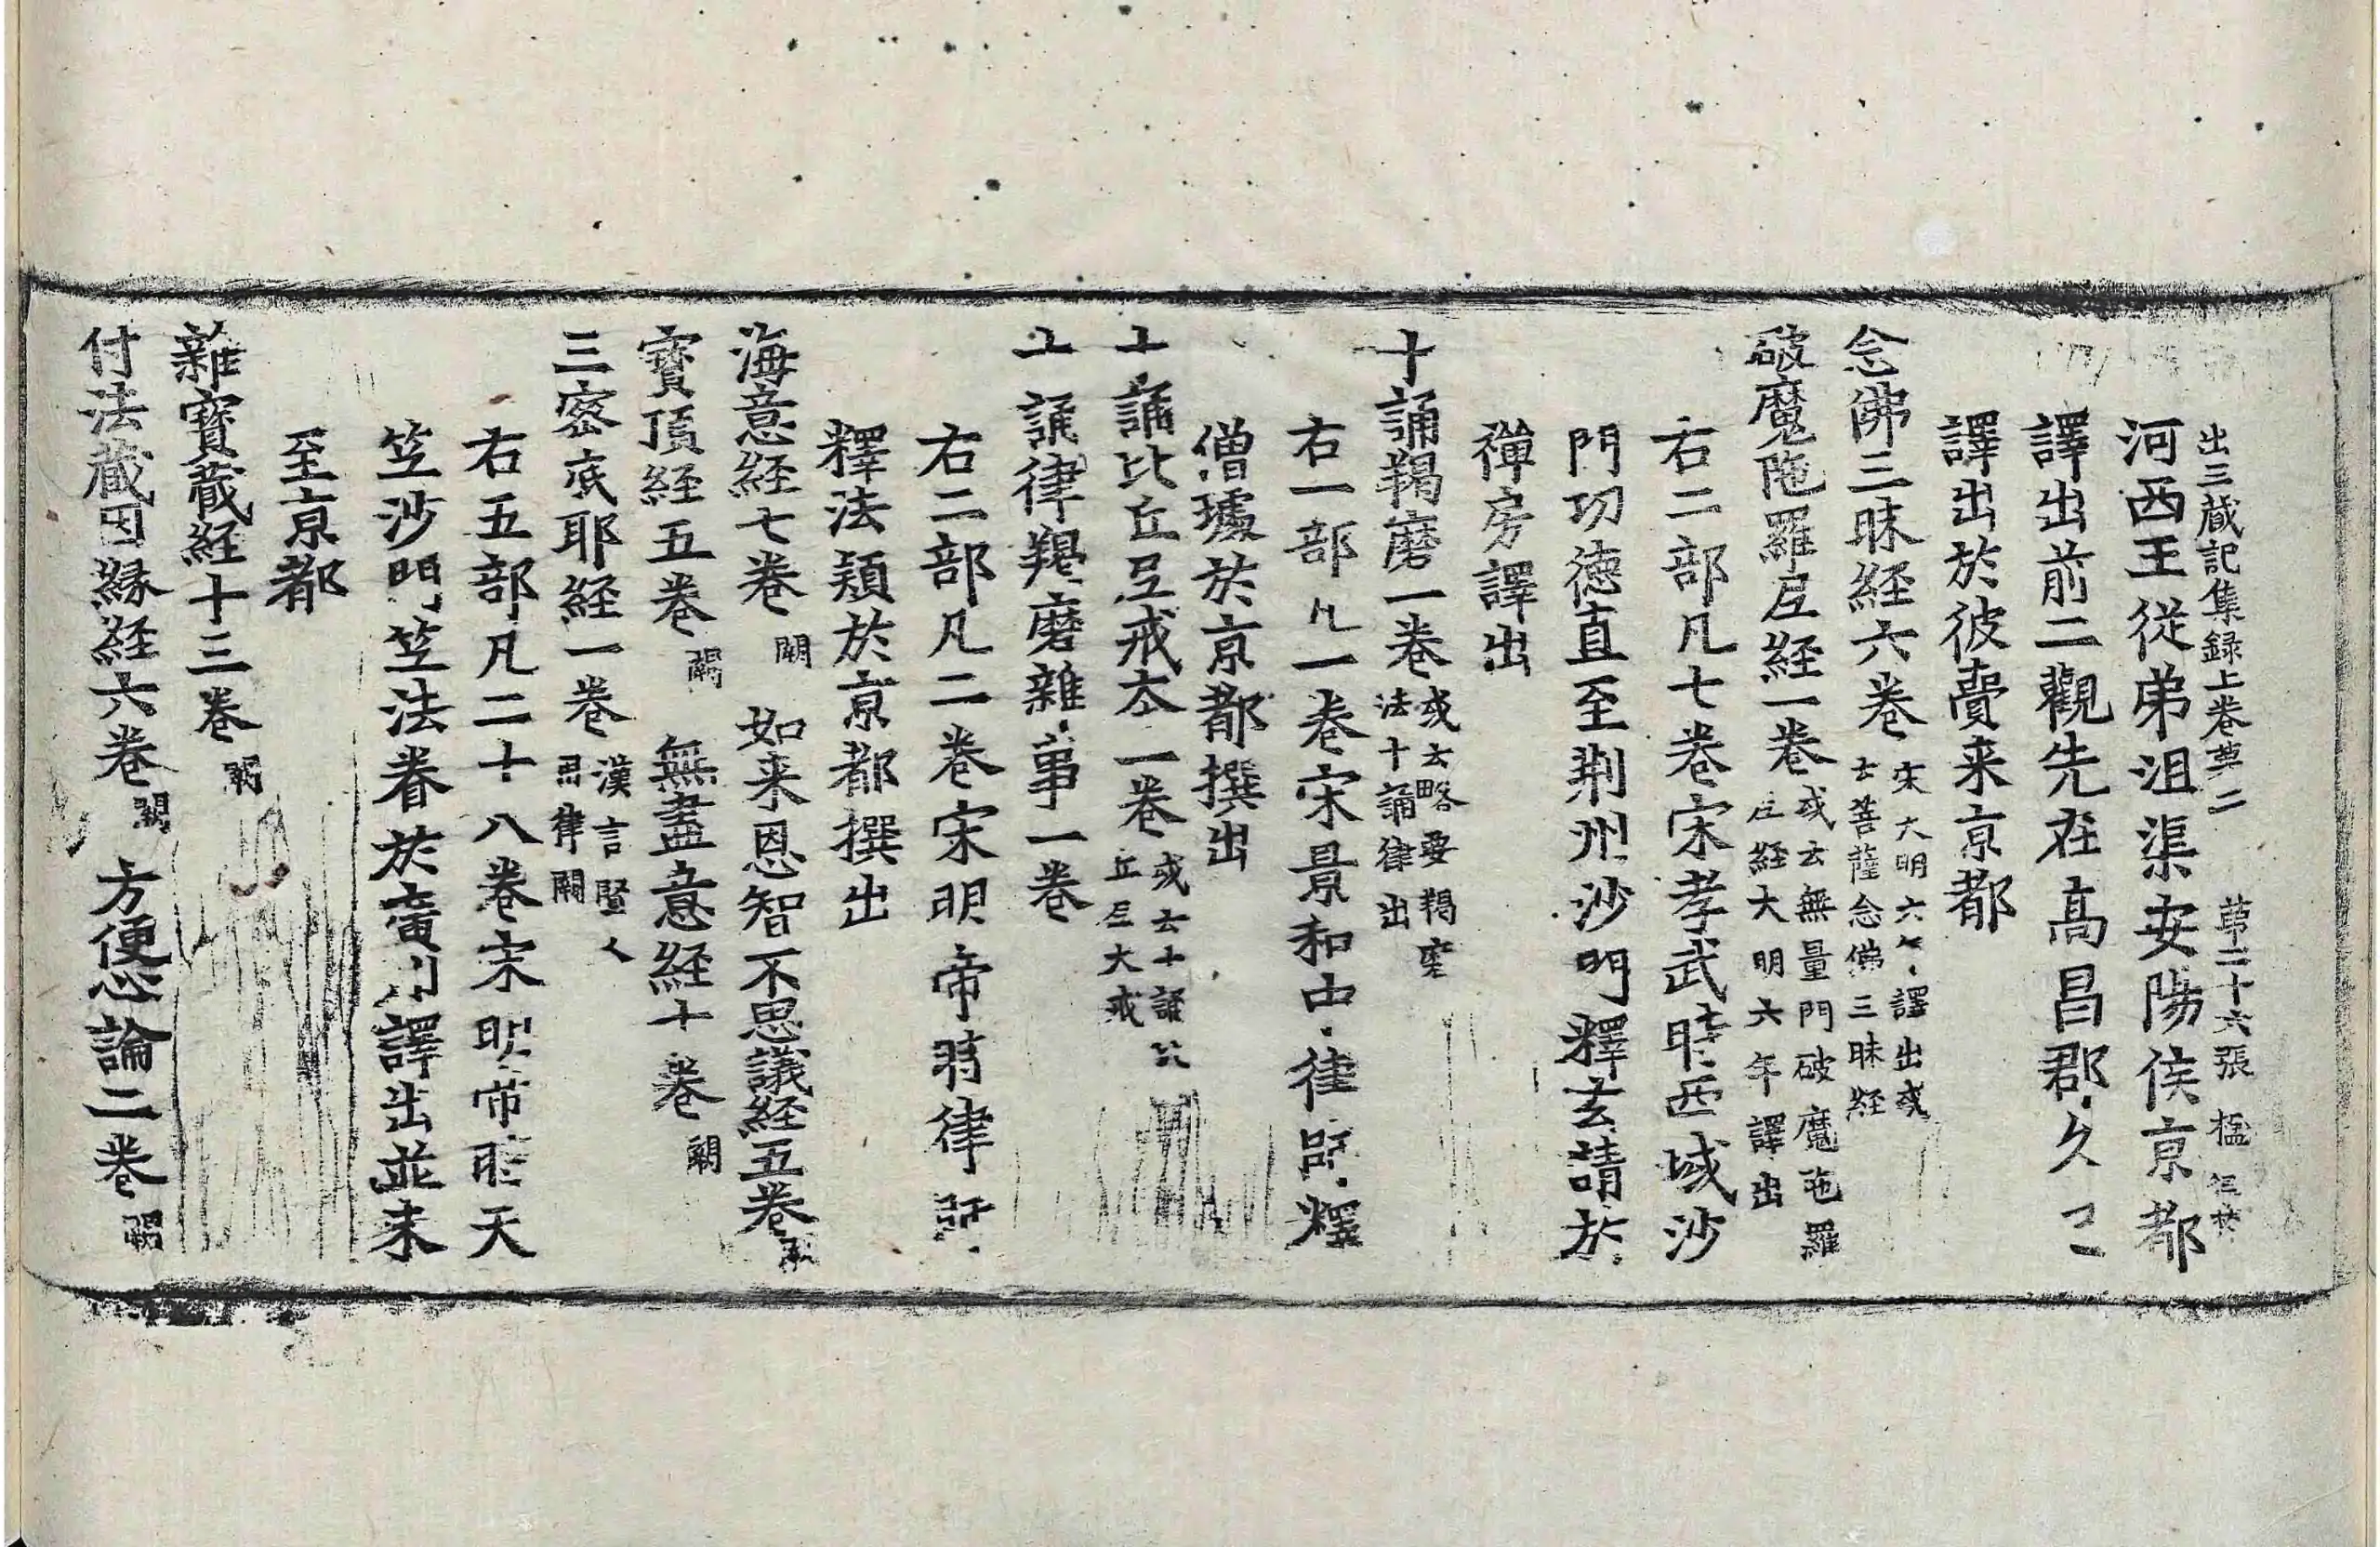 出三蔵記集録上巻苐二 苐二十六張
河西王従弟沮渠安陽侯京都
譯出前二觀先在高昌郡久已
譯出於彼賷来京都
念佛三昧経六巻 宋大明六年譯出或
云菩薩念佛三昧経
破魔陁羅尼経一巻 或云無量門破魔陁羅
尼経大明六年譯出
右二部凡七巻宋孝武時西域沙
門功德直至荆州沙門釋玄請於
禅房譯出
十誦羯磨一巻 或云略要羯磨
法十誦律出
右一部凡一巻宋景和中律師釋
僧璩於京都撰出
十誦比丘尼戒本一巻 或云十誦比
丘尼大戒
十誦律羯磨雜事一巻
右二部凡二巻宋明帝時律師
釋法穎於京都撰出
海意経七巻 闕 如来恩智不思議経五巻 闕
寳頂経五巻 闕 無盡意経十巻 闕
三密底耶経一巻 漢言賢人
用律闕
右五部凡二十八巻宋明帝時天
竺沙門竺法眷於廣州譯出並未
至京都
雜寳蔵経十三巻 闕
付法蔵因縁経六巻 闕 方便心論二巻 闕